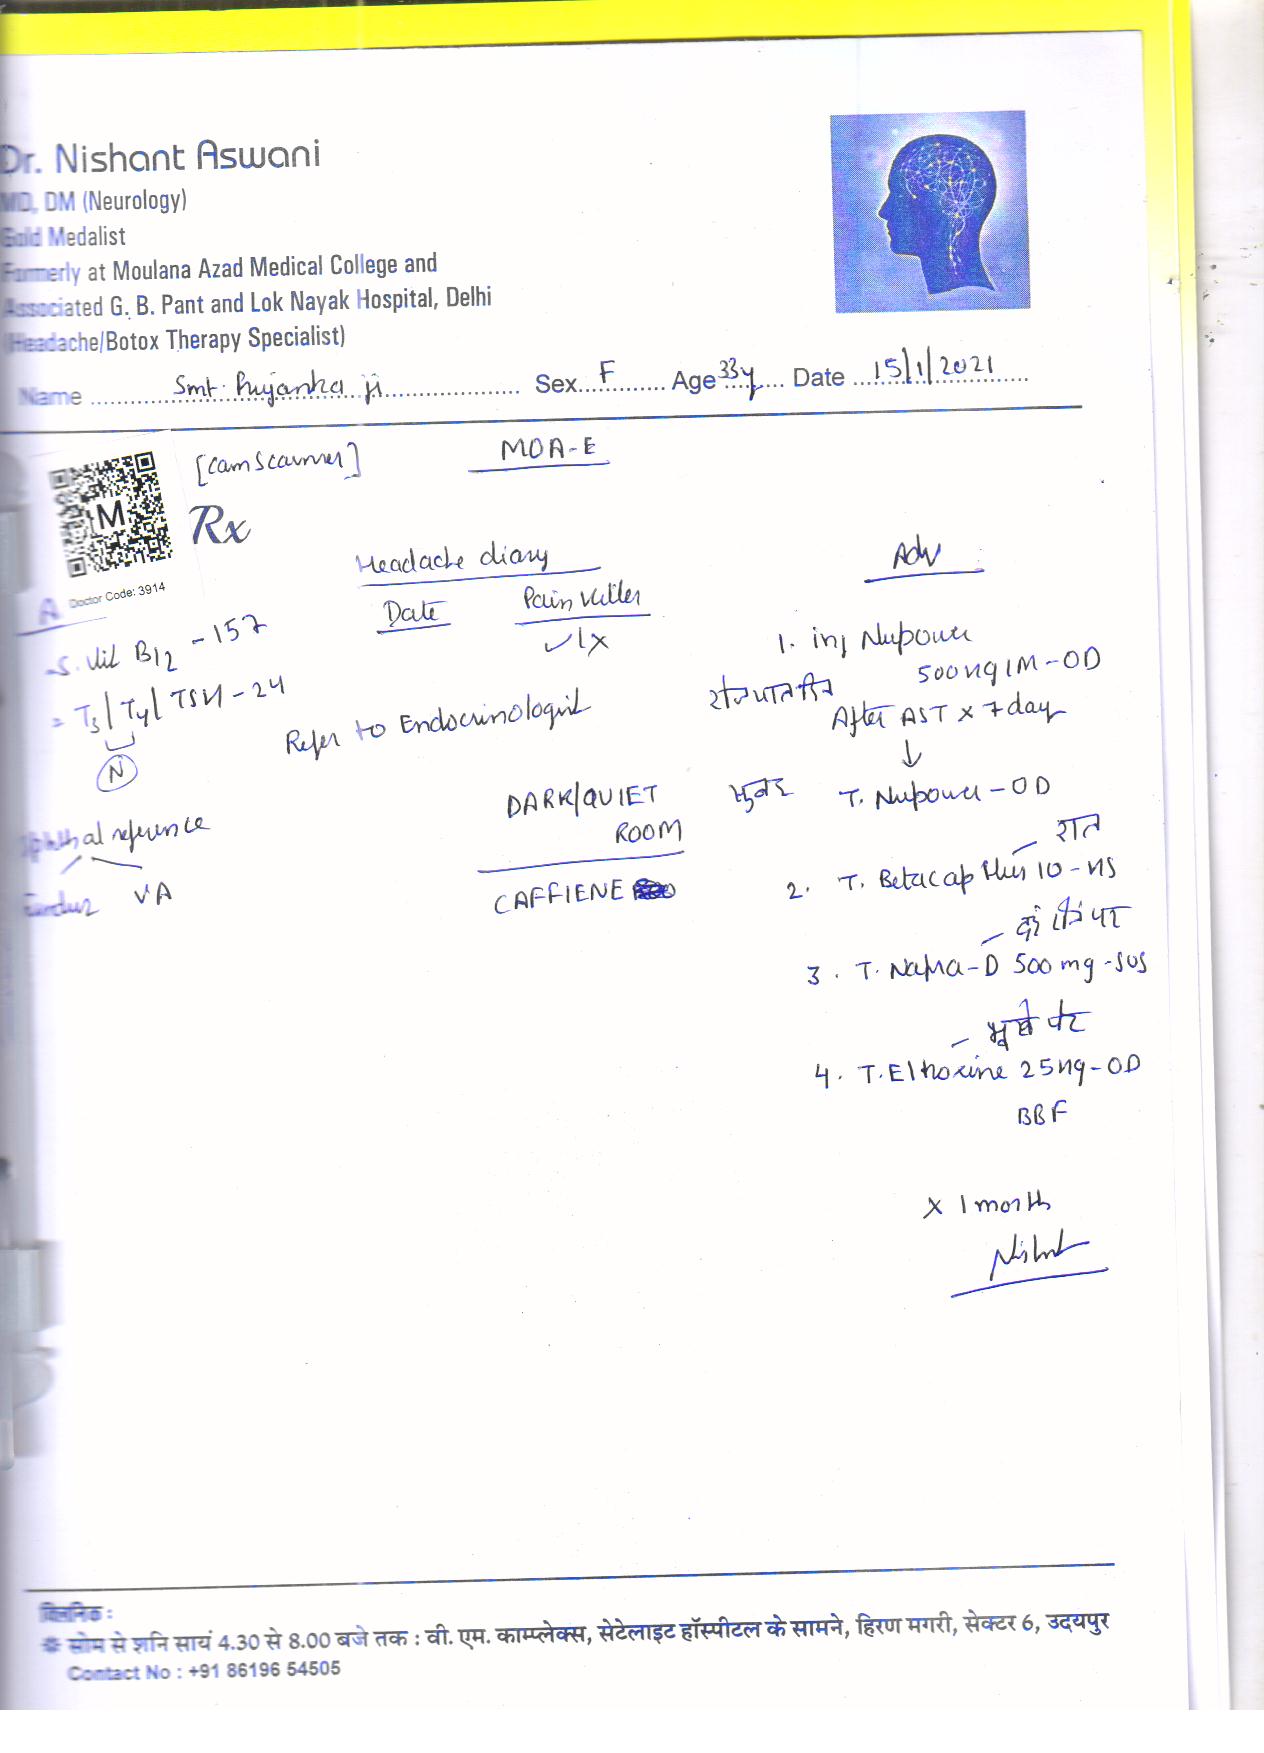 Dr. Nishant Aswani
MD, DM (Neurology)
Gold Medalist
Formerly at Moulana Azad Medical College and
Associated G. B. Pant and Lok Nayak Hospital, Delhi
(Headache/Botox Therapy Specialist)
Name Smt. Priyanka ji Sex F Age 33y Date 15/1/2021
[camscanner]
MOA-E
M
Rx
Doctor Code: 3914
Headache diary
Date Pain killer
✓/x
S. Vit B12 - 157
T3/T4/TSH - 24
N
Refer to Endocrinologist
Ophthal reference
Fundus VA
DARK/QUIET
ROOM
CAFFIENE
Adv
1. inj Nupower
500mg IM-OD
After AST x 7 day
↓
सुबह T. Nupower-OD
- रात
2. T. Betacap plus 10-HS
3. T. Napra-D 500 mg-SOS
- भूखे पेट
4. T. Elthoxine 25mg-OD
BBF
x 1 month
Nishant
क्लिनिक :
सोम से शनि सायं 4.30 से 8.00 बजे तक : वी. एम. काम्प्लेक्स, सेटेलाइट हॉस्पीटल के सामने, हिरण मगरी, सेक्टर 6, उदयपुर
Contact No : +91 86196 54505